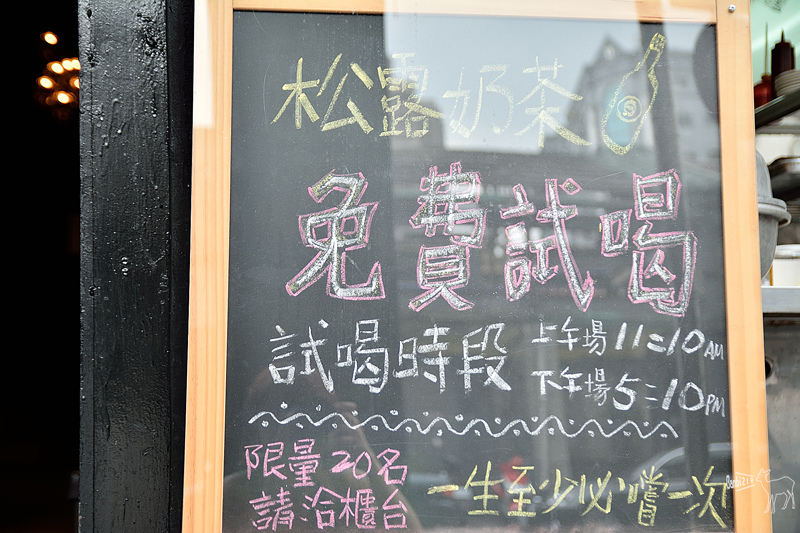 松露奶茶 S
免費試喝
試喝時段 上午場 11:10 AM
下午場 5:10 PM
限量20名
請洽櫃台
一生至少必嚐一次